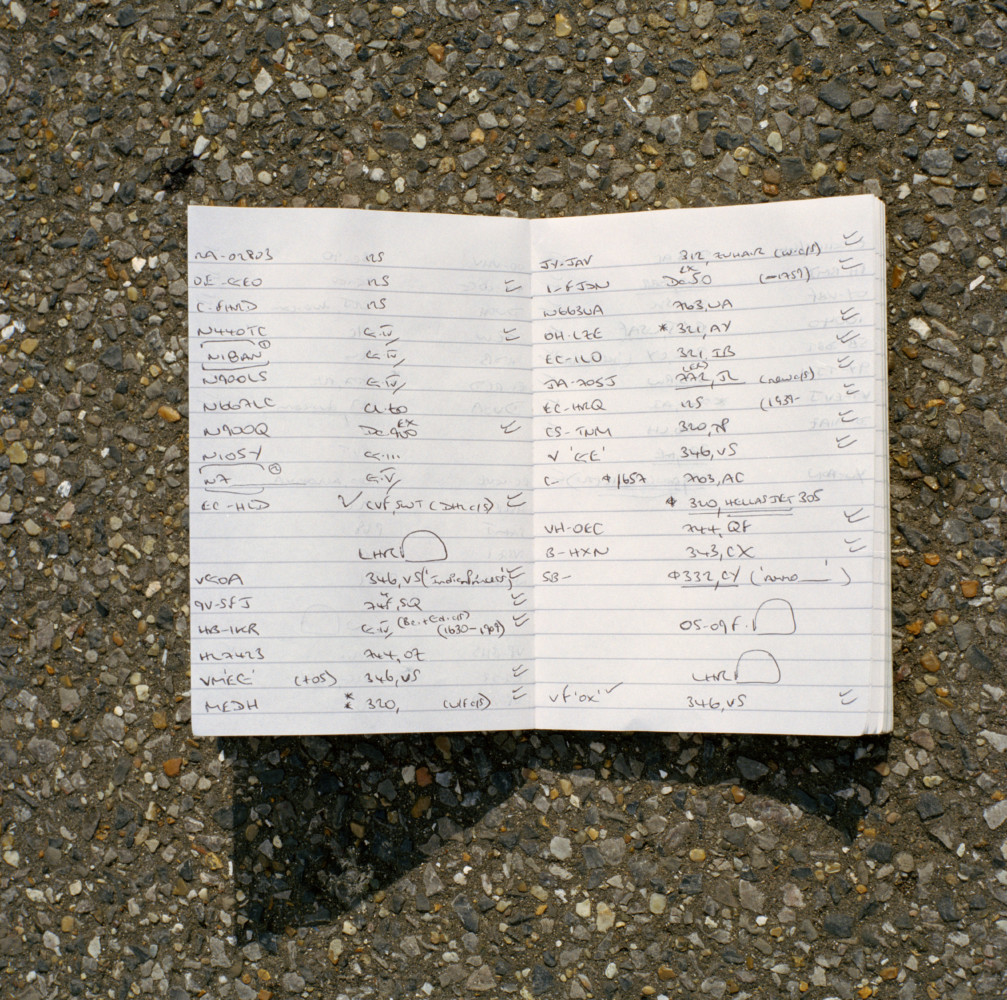 RA-02803 125
OE-GEO 125
C-FHRD 125
N440TC G.IV
N18AN ① G.IV
N900LS G.IV
N667LC CL.60
EX
N900Q DA.900
N105Y G...
N7 ② G.V
EC-HLD ✓ CVF, SWT (DHL c/s)
LHR
VGOA 346, VS ('Indian Princess')
9V-SFJ 74F, SQ
HB-IKR G.IV (1630-1909)
HL7423 744, OZ
V'MEG' (TOS) 346, VS
MEDH * 320, (W/F c/s)
JY-JAV 312, ZUHAIR (W-c/s)
EX
I-FJDN DA.50 (-1759)
N663UA 763, UA
OH-LZE * 321, AY
EC-ILO 321, IB
(ER)
JA-705J 772, JL (new c/s)
EC-HRQ 125 (1939-
CS-TNM 320, TP
V 'GE' 346, VS
C- *1657 763, AC
* 320, HELLAS JET 305
VH-OEC 744, QF
B-HXN 343, CX
5B- 332, CY
05-09F.
LHR
VF'OX' ✓ 346, VS